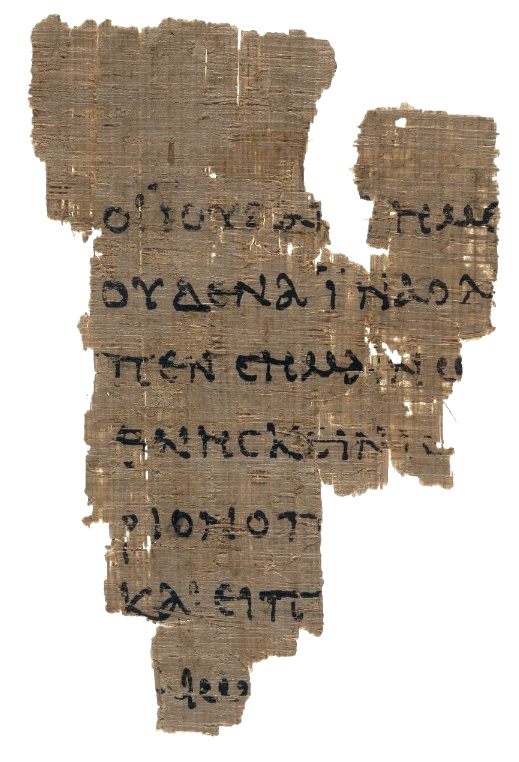 ΟΙ ΪΟΥΔΑΙ ΗΜΕ
ΟΥΔΕΝΑ ΪΝΑ Ο Λ
ΠΕΝ ΣΗΜΑΙΝΩ
ΘΝΗΣΚΕΙΝ ΙΣ
ΡΙΟΝ Ο Π
ΚΑΙ ΕΙΠ